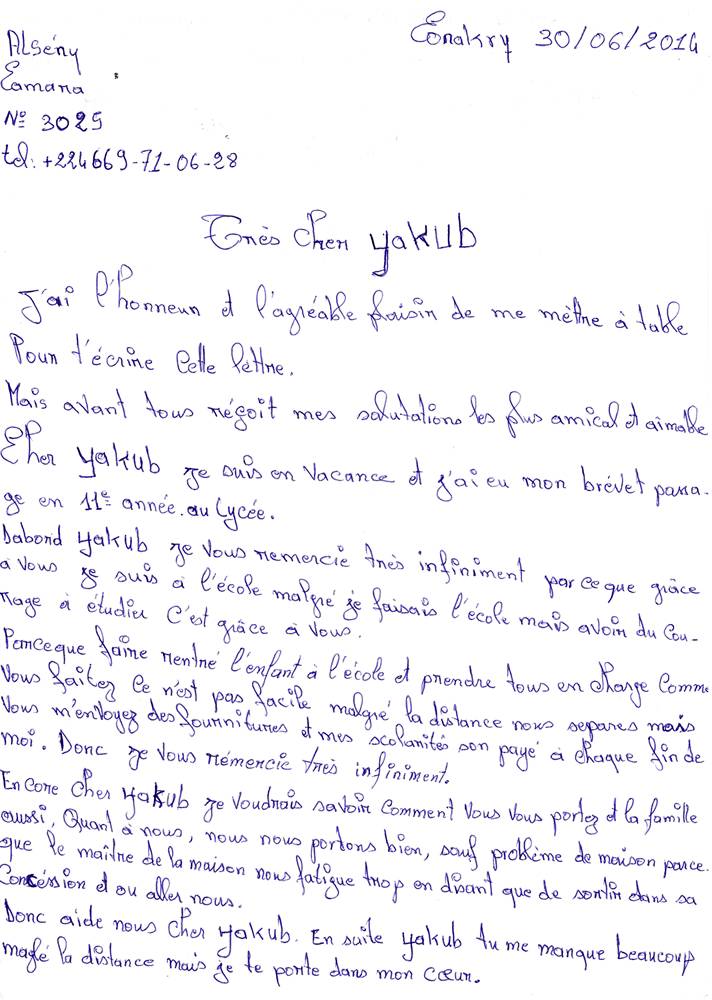 Conakry 30/06/2014
Alsény
Camara
Nº 3025
tel: +224669-71-06-28
Très cher yakub
J'ai l'honneur et l'agréable plaisir de me mèttre à table
Pour t'écrire Cette lettre.
Mais avant tous réçoit mes salutations les plus amical et aimable
Cher yakub je suis en Vacance et j'ai eu mon brévet passa-
ge en 11e année au lycée.
Dabord yakub je Vous remercie très infiniment parceque grâce
à Vous je suis à l'école malgré je faisais l'école mais avoir du Cou-
rage à étudier C'est grâce à Vous.
Parceque faire rentré l'enfant à l'école et prendre tous en charge Comme
Vous faitez Ce n'est pas facile malgré la distance nous separes mais
Vous m'envoyez des fournitures et mes scolarités son payé à chaque fin de
moi. Donc je Vous rémercie très infiniment.
Encore Cher yakub je Voudrais savoir Comment Vous Vous portez et la famille
aussi, Quant à nous, nous nous portons bien, sauf problème de maison parce.
que le maître de la maison nous fatigue trop en disant que de sortir dans sa
Concéssion et ou aller nous.
Donc aide nous Cher yakub. En suite yakub tu me manque beaucoup
maglé la distance mais je te porte dans mon Cœur.